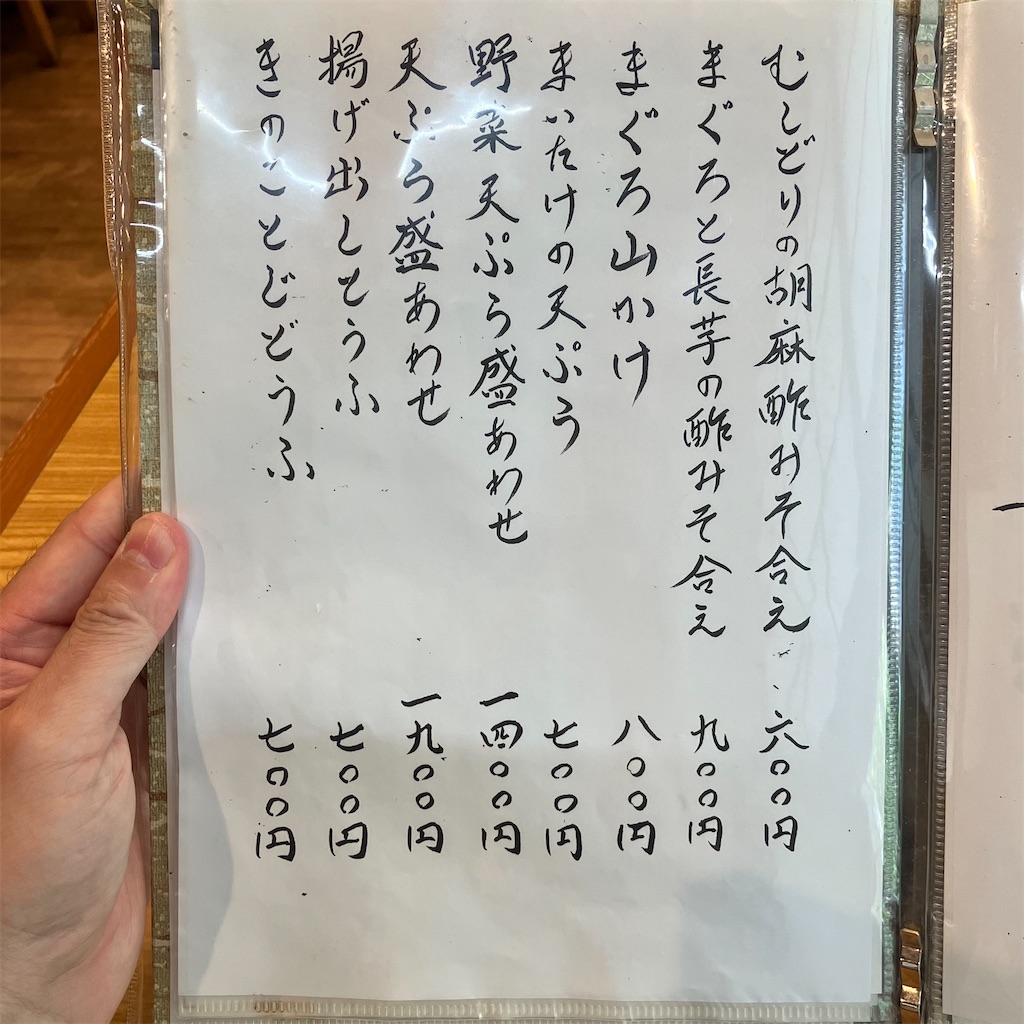 むしどりの胡麻酢みそ合え 六〇〇円
まぐろと長芋の酢みそ合え 九〇〇円
まぐろ山かけ 八〇〇円
まいたけの天ぷら 七〇〇円
野菜天ぷら盛あわせ 一四〇〇円
天ぷら盛あわせ 一九〇〇円
揚げ出しとうふ 七〇〇円
きのこととじどうふ 七〇〇円